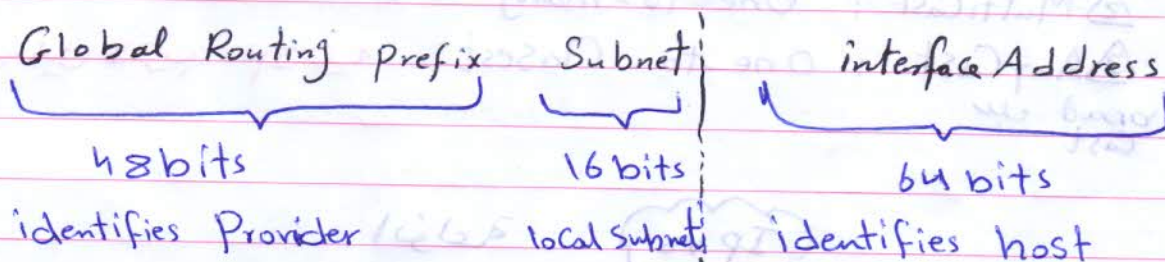 Global Routing Prefix Subnet interface Address
48 bits 16 bits 64 bits
identifies Provider local Subnet identifies host